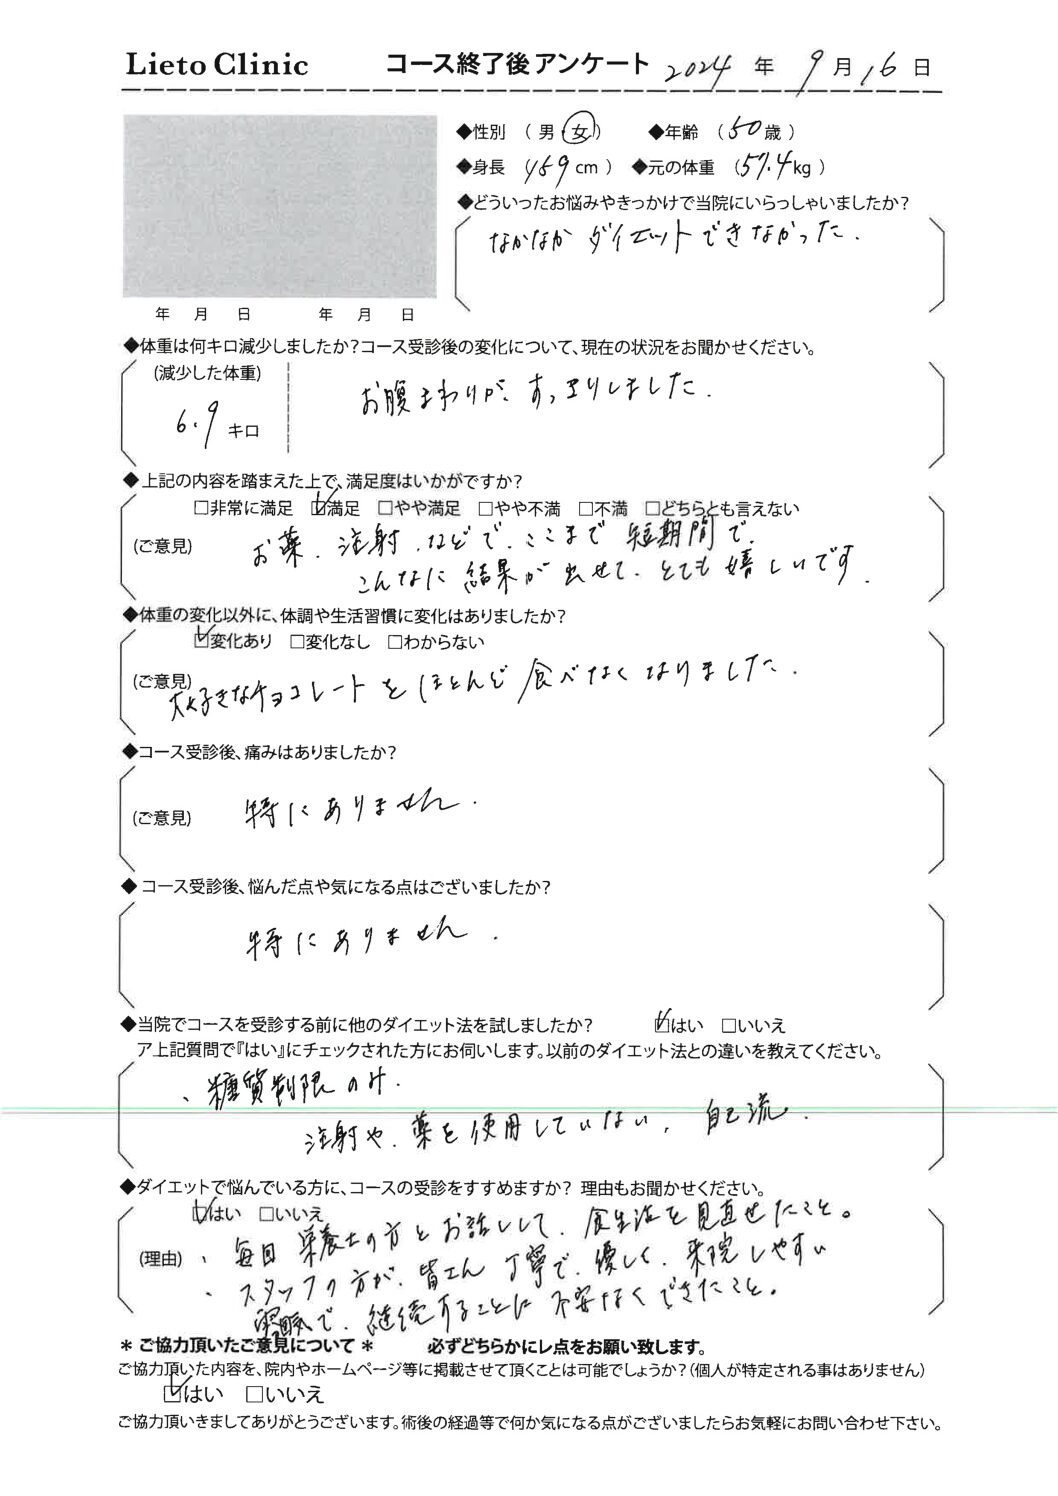 Lieto Clinic コース終了後アンケート 2024 年 9 月 16 日
◆性別 ( 男・女 ) ◆年齢 ( 50 歳 )
◆身長 ( 159 cm ) ◆元の体重 ( 57.4 kg )
◆どういったお悩みやきっかけで当院にいらっしゃいましたか?
なかなか ダイエットできなかった.
年 月 日 年 月 日
◆体重は何キロ減少しましたか?コース受診後の変化について、現在の状況をお聞かせください。
(減少した体重)
お腹まわりが、すっきりしました.
6.9 キロ
◆上記の内容を踏まえた上で、満足度はいかがですか?
□非常に満足 ☑満足 □やや満足 □やや不満 □不満 □どちらとも言えない
(ご意見) お薬、注射、などで、ここまで 短期間で、
こんなに 結果が 出せて、とても 嬉しいです.
◆体重の変化以外に、体調や生活習慣に変化はありましたか?
☑変化あり □変化なし □わからない
(ご意見) 大好きなチョコレートを ほとんど 食べなくなりました.
◆コース受診後、痛みはありましたか?
(ご意見) 特にありません.
◆ コース受診後、悩んだ点や気になる点はございましたか?
特にありません.
◆当院でコースを受診する前に他のダイエット法を試しましたか? ☑はい □いいえ
ア上記質問で『はい』にチェックされた方にお伺いします。以前のダイエット法との違いを教えてください。
、糖質制限のみ.
注射や、薬を使用していない、自己流.
◆ダイエットで悩んでいる方に、コースの受診をすすめますか? 理由もお聞かせください。
☑はい □いいえ
(理由) 、毎回 栄養士の方とお話しして、食生活を見直せたこと。
、スタッフの方が、皆さん 丁寧で、優しく、来院しやすい
雰囲気で、継続することに 不安なくできたこと。
* ご協力頂いたご意見について * 必ずどちらかにレ点をお願い致します。
ご協力頂いた内容を、院内やホームページ等に掲載させて頂くことは可能でしょうか?(個人が特定される事はありません)
☑はい □いいえ
ご協力頂いきましてありがとうございます。術後の経過等で何か気になる点がございましたらお気軽にお問い合わせ下さい。